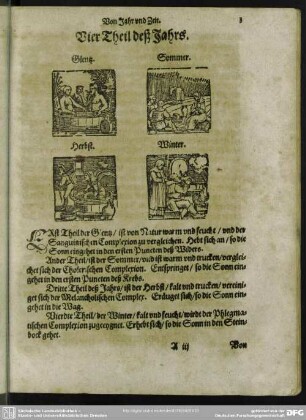 Von Jahr vnd Zeit. 3
Vier Theil deß Jahrs.
Glentz. Sommer.
Herbst. Winter.
ERst Theil der Glentz / ist von Natur warm vnd feucht / vnd der
Sanguinischen Complexion zu vergleichen. Hebt sich an / so die
Sonn eingehet in den ersten Puncten deß Widers.
Ander Theil / ist der Sommer / vnd ist warm vnd trucken / verglei-
chet sich der Cholerischen Complexion. Entspringet / so die Sonn ein-
gehet in den ersten Puncten deß Krebs.
Dritte Theil deß Jahrs / ist der Herbst / kalt vnd trucken / vereini-
get sich der Melancholischen Complex. Eräuget sich / so die Sonn ein-
gehet in die Wag.
Vierdte Theil / der Winter / kalt vnd feucht / wirdt der Phlegma-
tischen Complexion zugeeygnet. Erhebt sich / so die Sonn in den Stein-
bock gehet.
A iij Von